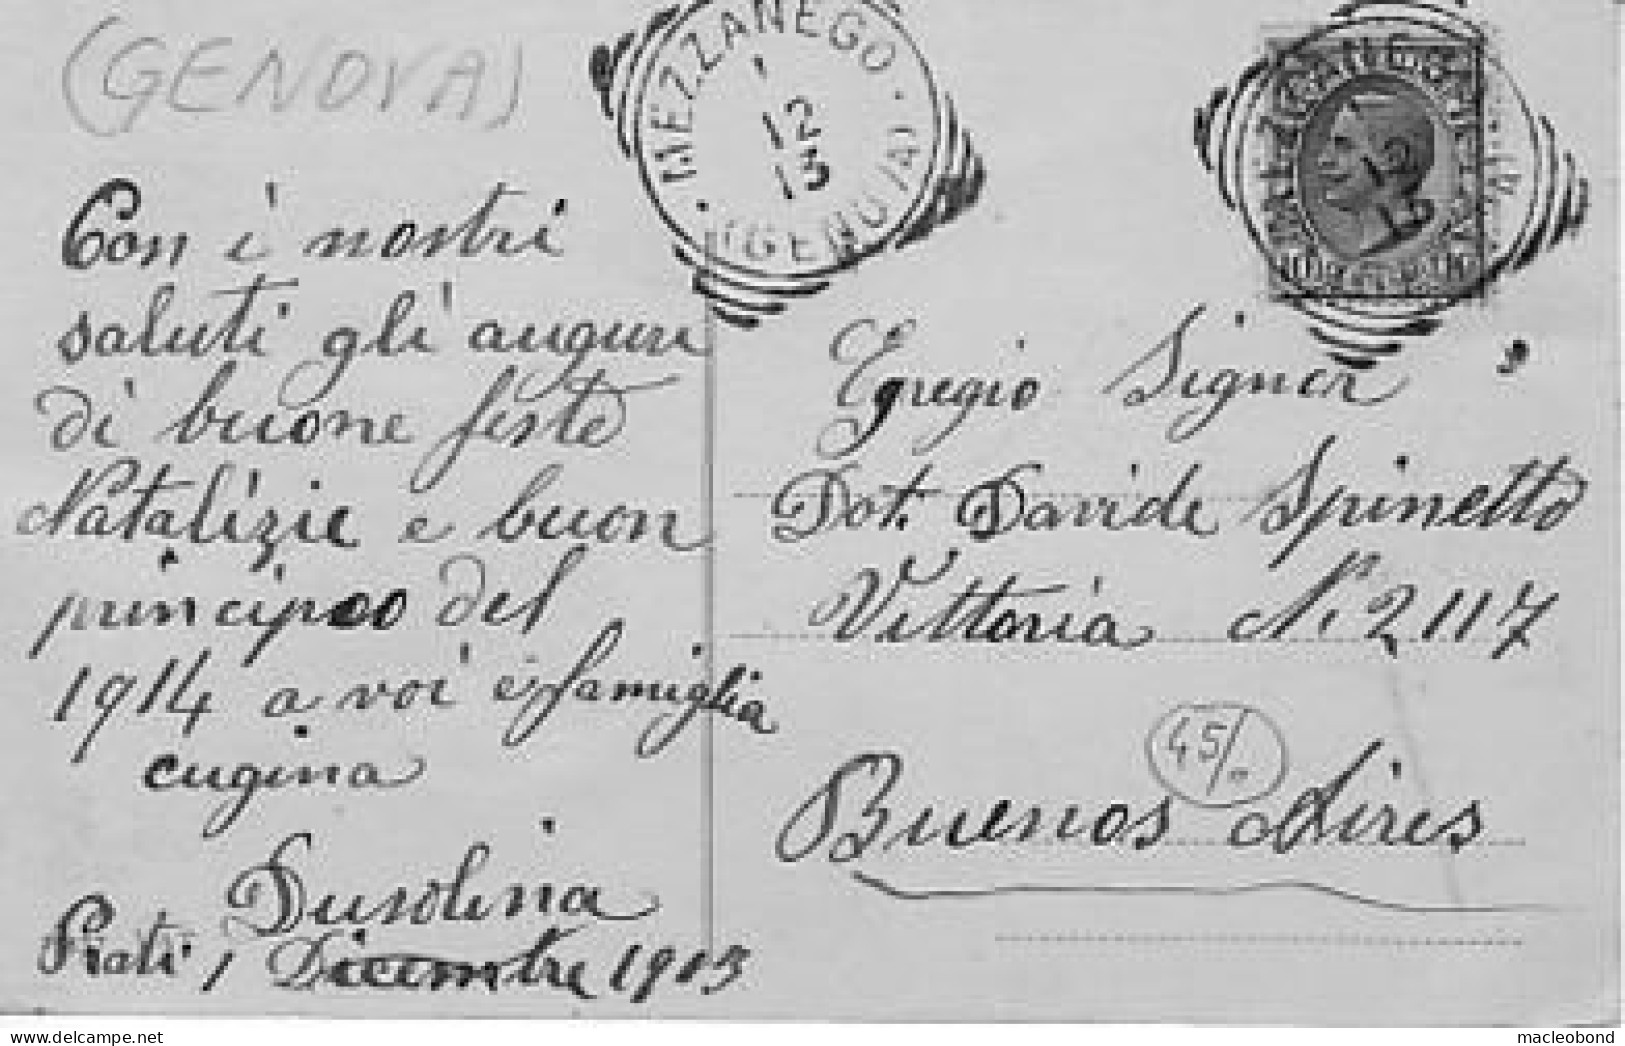 (GENOVA)
MEZZANEGO
1
12
13
(GENOVA)
Con i nostri
saluti gli auguri
di buone feste
Natalizie e buon
principio del
1914 a voi e famiglia
cugina
Dusolina
Prati, 1 Dicembre 1913
Egregio Signor
Dot. Davide Spinetto
Vittoria N. 2117
45/.
Buenos Aires
delcampe.net
macleobond